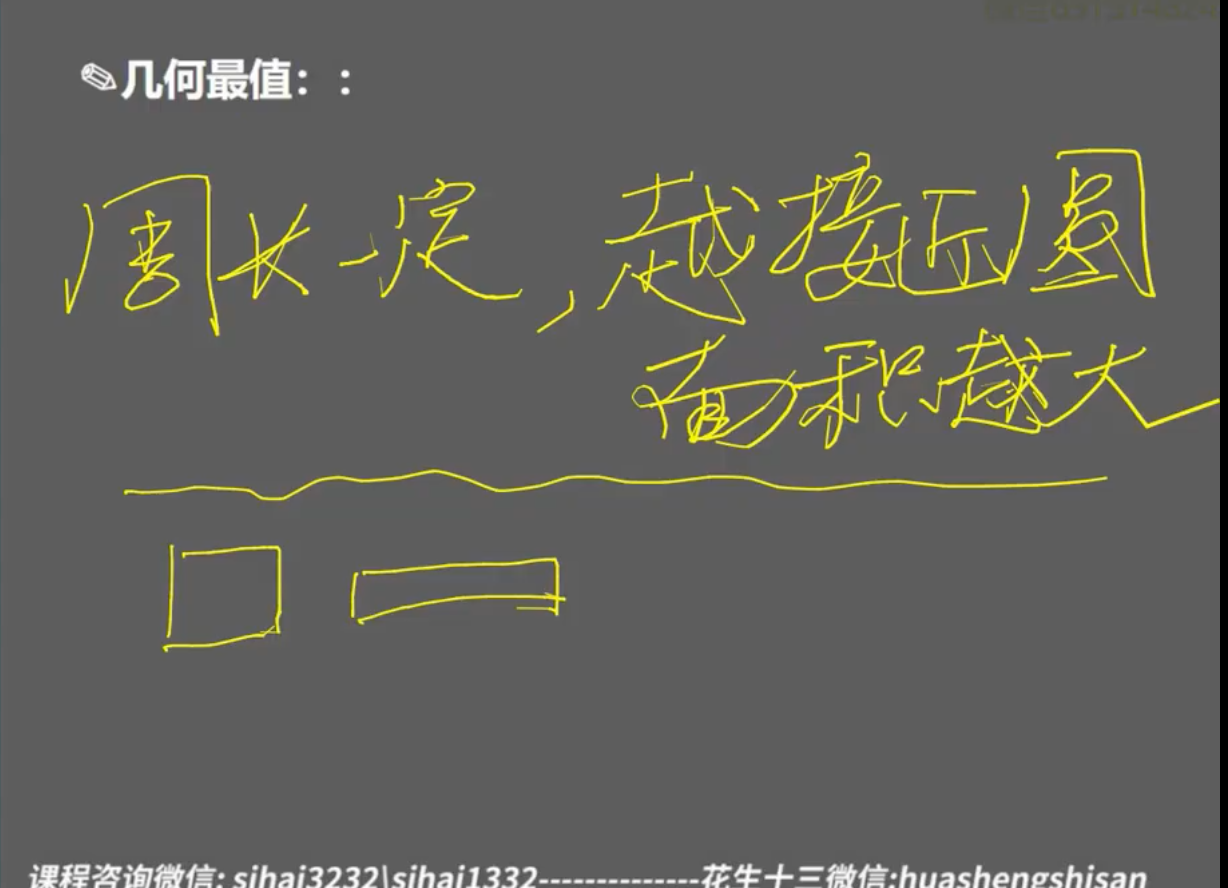 几何最值：:
周长一定,越接近圆
面积越大
课程咨询微信: sihai3232\sihai1332--------------花生十三微信:huashengshisan